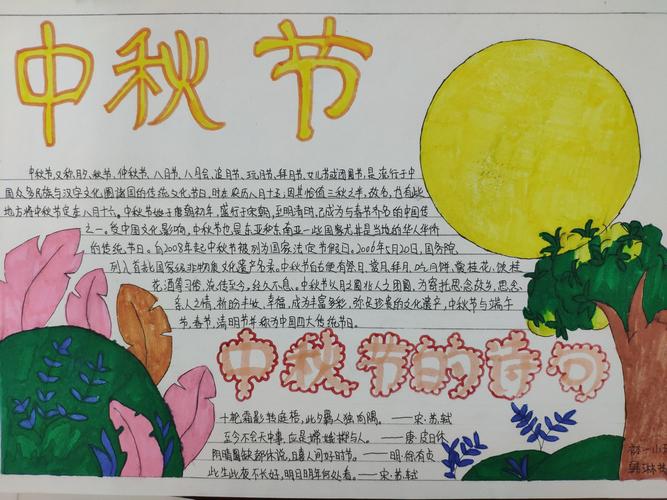 中秋节
中秋节又称月夕、秋节、仲秋节、八月节、八月会、追月节、玩月节、拜月节、女儿节或团圆节,是流行于中
国众多民族与汉字文化圈诸国的传统文化节日,时在农历八月十五;因其恰值三秋之半,故名,也有些
地方将中秋节定在八月十六。中秋节始于唐朝初年,盛行于宋朝,至明清时,已成为与春节齐名的中国传
之一。受中国文化影响,中秋节也是东亚和东南亚一些国家尤其是当地的华人华侨
的传统节日。自2008年起中秋节被列为国家法定节假日。2006年5月20日,国务院
列入首批国家级非物质文化遗产名录。中秋节自古便有祭月、赏月、拜月、吃月饼、赏桂花、饮桂
花酒等习俗,流传至今,经久不息。中秋节以月之圆兆人之团圆,为寄托思念故乡,思念
亲人之情,祈盼丰收、幸福,成为丰富多彩、弥足珍贵的文化遗产,中秋节与端午
节、春节、清明节并称为中国四大传统节日。
中秋节的诗句
十轮霜影转庭梧,此夕羁人独向隅。——宋·苏轼
至今不会天中事,应是嫦娥掷与人。——唐·皮日休
阴晴圆缺都休说,且喜人间好时节。——明·徐有贞
此生此夜不长好,明月明年何处看。——宋·苏轼